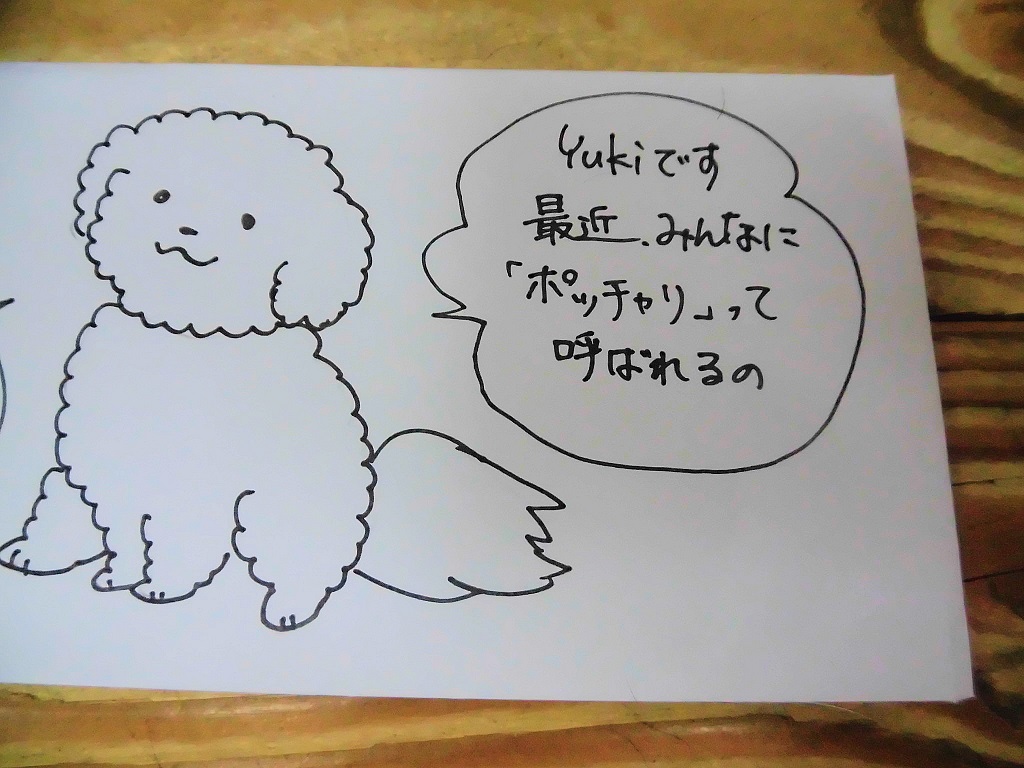 Yukiです
最近、みんなに
「ポッチャリ」って
呼ばれるの